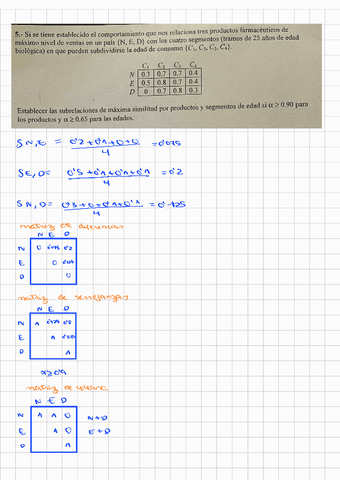 5.- Si se tiene establecido el comportamiento que nos relaciona tres productos farmacéuticos de
máximo nivel de ventas en un país {N, E, D} con los cuatro segmentos (tramos de 25 años de edad
biológica) en que pueden subdividirse la edad de consumo {C1, C2, C3, C4}.
C1 C2 C3 C4
N 0.3 0.7 0.7 0.4
E 0.5 0.8 0.7 0.4
D 0 0.7 0.8 0.3
Establecer las subrelaciones de máxima similitud por productos y segmentos de edad si α ≥ 0.90 para
los productos y α ≥ 0.65 para las edades.
SN,E = 0'2+0'1+0+0 / 4 = 0'075
SE,D= 0'5+0'1+0'1+0'1 / 4 = 0'2
SN,D= 0'3+0+0'1+0'1 / 4 = 0'125
matriz de diferencias
N E D
N 0 0'075 0'2
E 0
D 0
matriz de semejanzas
N E D
N 1
E 1
D 1
α≥0'9
matriz de
N E D
N 1 1 0 N≠D
E 1 0 E≠D
D 1